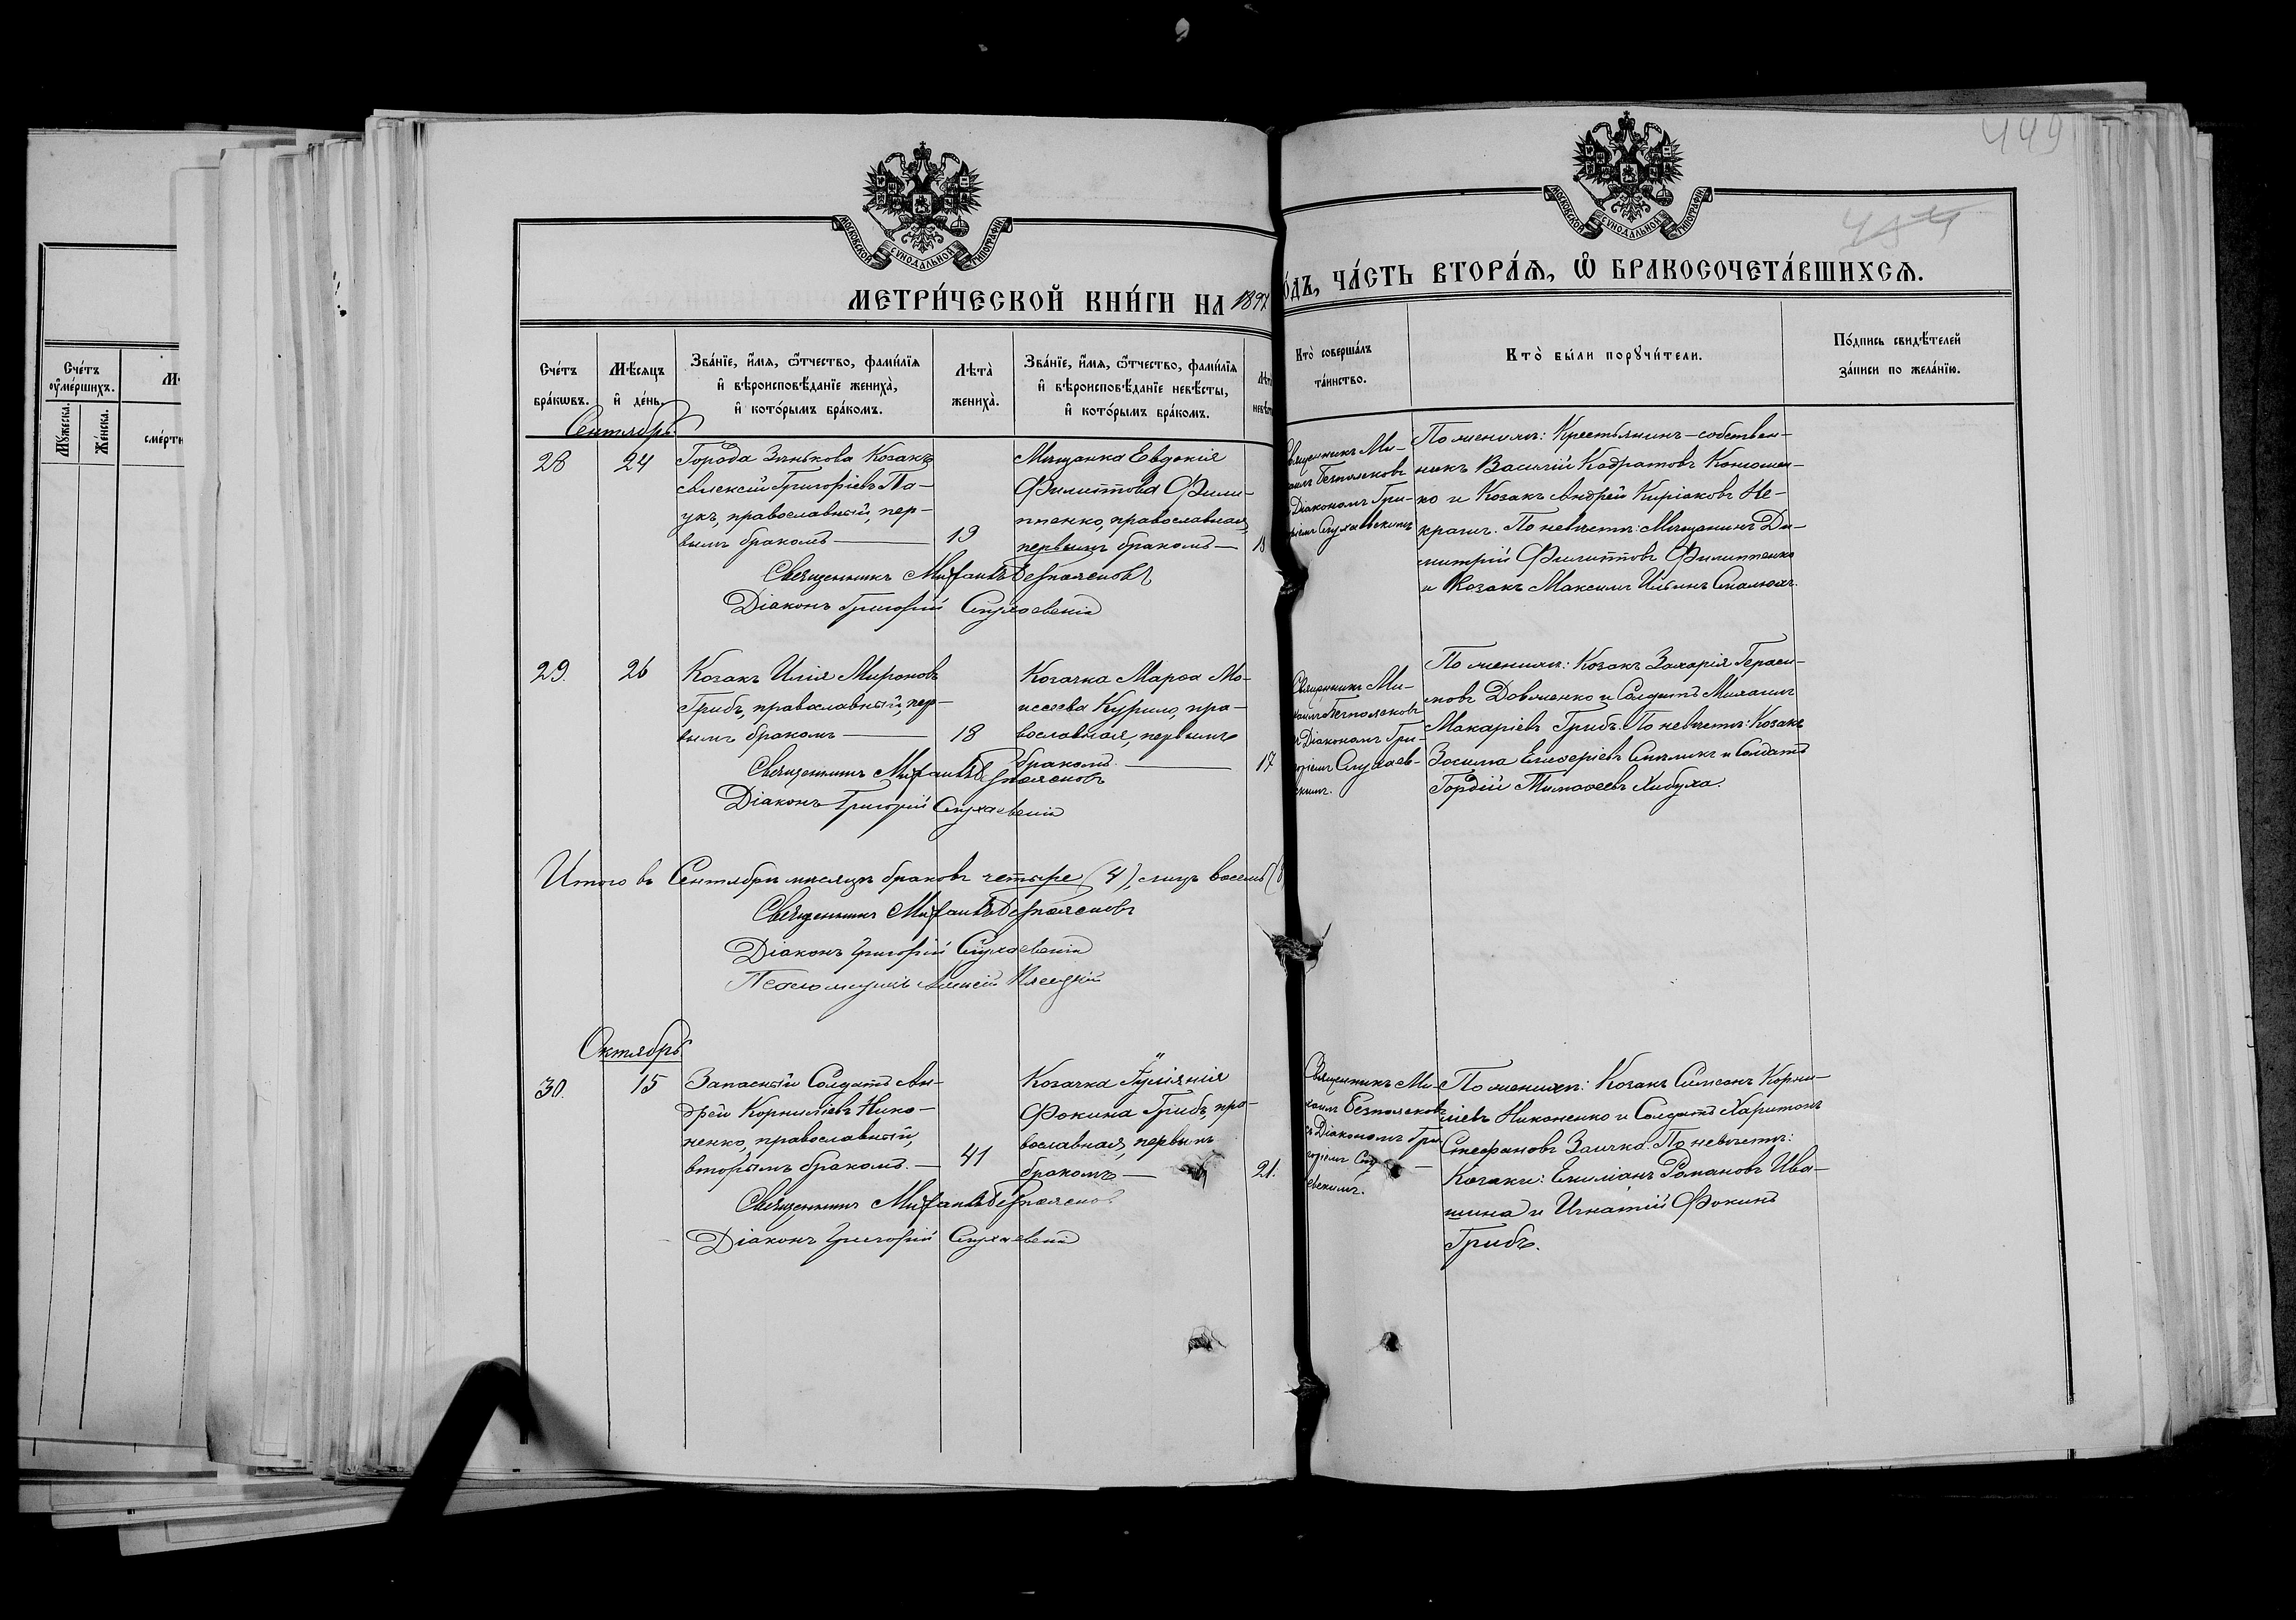 449
МОСКОВСКОЙ СѴНОДАЛЬНОЙ ТИПОГРАФІИ
МОСКОВСКОЙ СѴНОДАЛЬНОЙ ТИПОГРАФІИ
МЕТРИ́ЧЕСКОЙ КНИ́ГИ НА 1897
О́ДЪ, ЧА́СТЬ ВТОРА́Ѧ, Ѽ БРАКОСОЧЕТА́ВШИХСѦ.
Сче́тъ
оу҆ме́ршихъ.
Мꙋ́жеска.
Же́нска.
сме́рти
Сче́тъ
бра́кѡвъ.
Мѣ́сѧцъ
и҆ де́нь.
Зва́нїе, и҆́мѧ, ѻ҆́тчество, фами́лїѧ
и҆ вѣроисповѣ́данїе жениха̀,
и҆ кото́рымъ бра́комъ.
Лѣта̀
жениха̀.
Зва́нїе, и҆́мѧ, ѻ҆́тчество, фами́лїѧ
и҆ вѣроисповѣ́данїе невѣ́сты,
и҆ кото́рымъ бра́комъ.
Кто̀ соверша́лъ
та́инство.
Кто̀ бы́ли порꙋчи́тели.
По́дпись свидѣ́телей
за́писи по жела́нїю.
Сентябрь.
28
24
Города Зѣнькова Козакъ
Алексій Григоріевъ Па-
укъ, православный, пер-
вымъ бракомъ —
19
Мѣщанка Евдокія
Филиппова Фили-
ппенко, православная,
первымъ бракомъ —
Священникъ Ми-
хаилъ Безпоясковъ
Діакономъ Гри-
По женихѣ: Крестьянинъ-собствен-
никъ Василій Кодратовъ Кономен-
ко и Козакъ Андрей Киріаковъ Не-
крашъ. По невѣстѣ: Мѣщанинъ Ди-
митрій Филипповъ Филиппенко
и Козакъ Максимъ Ильинъ
Священникъ Михаилъ Безпоясковъ
Діаконъ Григорій Слухаевскій
29.
26
Козакъ Илія Мироновъ
Грибъ, православный, пер-
вымъ бракомъ —
18
Козачка Марѳа Мо-
исеева Курило, пра-
вославная, первымъ
бракомъ. —
17
Священникъ Ми-
хаилъ Безпоясковъ
съ Діакономъ Гри-
горіемъ Слухаев-
скимъ.
По женихѣ: Козакъ Захарія Гераси-
мовъ Довженко и Солдатъ Михаилъ
Макаріевъ Грибъ. По невѣстѣ: Козакъ
Зосима Елиѳеріевъ и Солдатъ
Гордій Тимоѳеевъ Хибуха.
Священникъ Михаилъ Безпоясковъ
Діаконъ Григорій Слухаевскій
Итого въ Сентябрѣ мѣсяцѣ браковъ четыре (4), лицъ восемь (8
Священникъ Михаилъ Безпоясковъ
Діаконъ Григорій Слухаевскій
Псаломщикъ Алексій
Октябрь.
30.
15
Запасный Солдатъ Ан-
дрей Корниліевъ Нико-
ненко, православный,
вторымъ бракомъ. —
41
Козачка Іуліянія
Фокина Грибъ, пра-
вославная, первымъ
бракомъ —
21.
Священникъ Ми-
хаилъ Безпоясковъ
съ Діакономъ Гри-
горіемъ Слу
евскимъ.
По женихѣ: Козакъ Симеонъ Корни-
ліевъ Никоненко и Солдатъ Харитонъ
Стефановъ Заичко. По невѣстѣ:
Козаки: Емиліанъ Романовъ Ива-
шина и Игнатій Фокинъ
Грибъ.
Священникъ Михаилъ Безпоясковъ
Діаконъ Григорій Слухаевскій